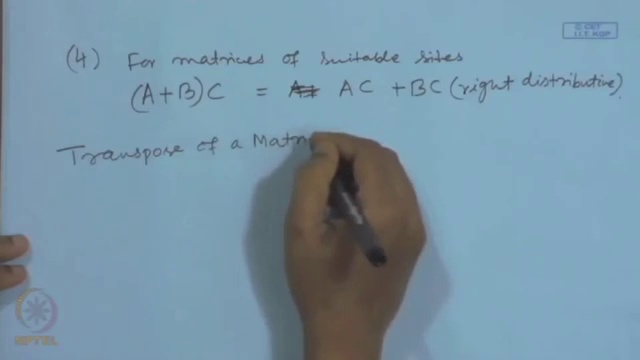 © CET
I.I.T. KGP
(4) For matrices of suitable sites
(A+B)C = AC + BC (right distributive).
Transpose of a Matri
NPTEL